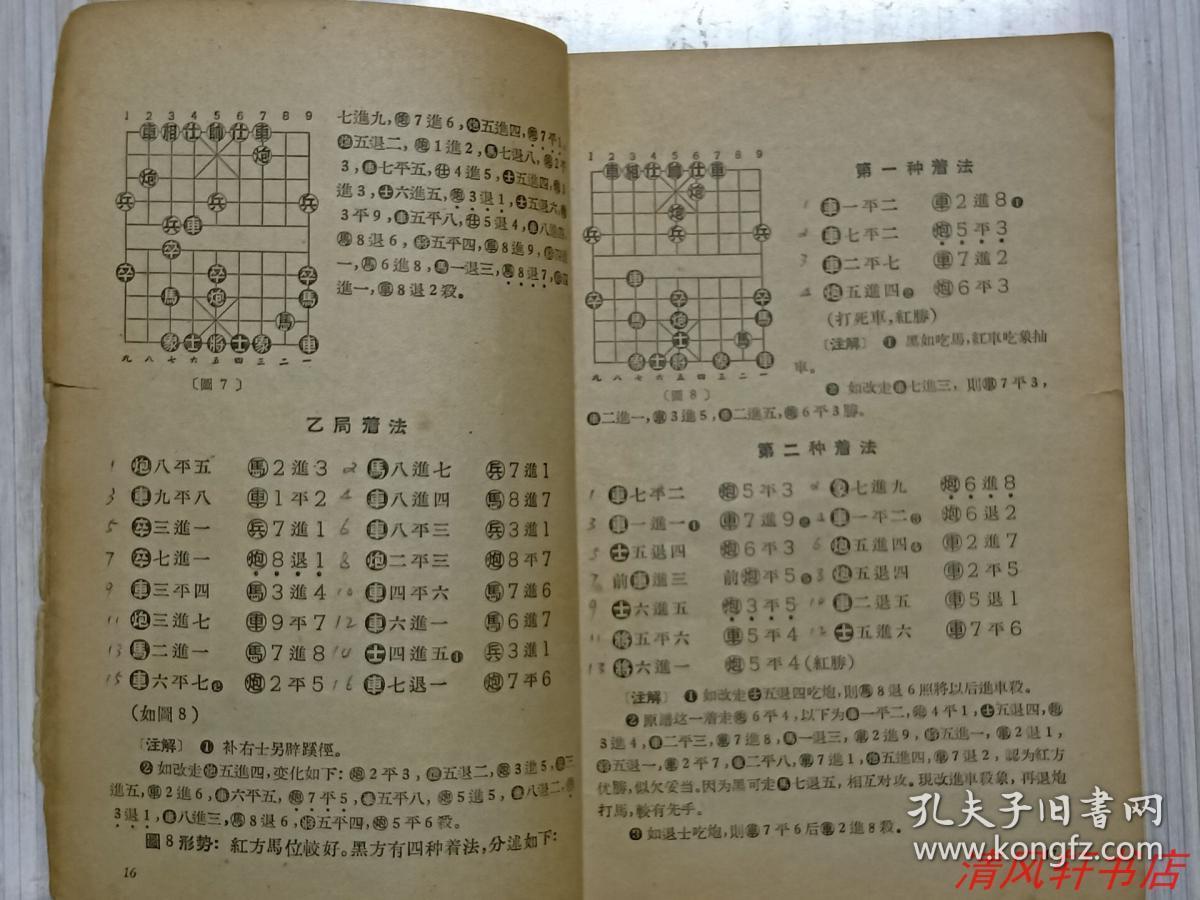 1 2 3 4 5 6 7 8 9
九 八 七 六 五 四 三 二 一
〔圖7〕
七進九，炮7進6，炮五進四，炮7平1，
炮五退二，炮1進2，馬七退八，
3，車七平五，仕4進5，士五進四，
進3，士六進五，炮3退1，士五退六，
3平9，車五平八，仕5退4，車八進四，
馬8退6，將五平四，馬8進9，
一，馬6進8，車一退三，馬8退7，
進一，車8退2殺。
乙局着法
1 炮八平五 馬2進3 2 馬八進七 兵7進1
3 車九平八 車1平2 4 車八進四 馬8進7
5 卒三進一 兵7進1 6 車八平三 兵3進1
7 卒七進一 炮8退1 8 炮二平三 炮8平7
9 車三平四 馬3進4 10 車四平六 馬7進6
11 炮三進七 車9平7 12 車六進一 馬6進7
13 馬二進一 馬7進8 14 士四進五❶ 兵3進1
15 車六平七❷ 炮2平5 16 車七退一 炮7平6
(如圖8)
〔注解〕 ❶ 补右士另辟蹊徑。
❷ 如改走炮五進四，变化如下：炮2平3，炮五退二，炮3進5，車三
進五，車2進6，車六平五，炮7平5，車五平八，炮5進5，車八退二，
3退1，車八進三，馬8退6，將五平四，炮5平6殺。
圖8形勢：紅方馬位較好。黑方有四种着法，分述如下：
16
1 2 3 4 5 6 7 8 9
九 八 七 六 五 四 三 二 一
〔圖8〕
第一种着法
1 車一平二 車2進8❶
2 車七平二 炮5平3
3 車二平七 車7進2
4 炮五進四❷ 炮6平3
(打死車，紅勝)
〔注解〕 ❶ 黑如吃馬，紅車吃象抽
車。
❷ 如改走車七進三，則車7平3，
車二進一，車3進5，車二進五，炮6平3勝。
第二种着法
1 車七平二 炮5平3 2 馬七進九 炮6進8
3 車一進一❶ 車7進9❷ 4 車一平二❸ 炮6退2
5 士五退四 炮6平3 6 炮五進四 車2進7
7 前車進三 前炮平5 8 炮五退四 車2平5
9 士六進五 炮3平5 10 車二退五 車5退1
11 將五平六 車5平4 12 士五進六 車7平6
13 將六進一 炮5平4(紅勝)
〔注解〕 ❶ 如改走士五退四吃炮，則馬8退6照將以后進車殺。
❷ 原譜这一着走炮6平4，以下为車一平二，炮4平1，士五退四，炮
3進4，車二平三，車7進8，車一退三，車2進9，將五進一，車2退1，
將五退一，車2平7，車二平八，車7進1，炮五進四，車7退2，認为紅方
优勝，似欠妥当。因为黑可走車七退五，相互对攻。現改進車殺象，再退炮
打馬，較有先手。
❸ 如退士吃炮，則車7平6后車2進8殺。
孔夫子旧書网
www.kongfz.com
清风轩书店